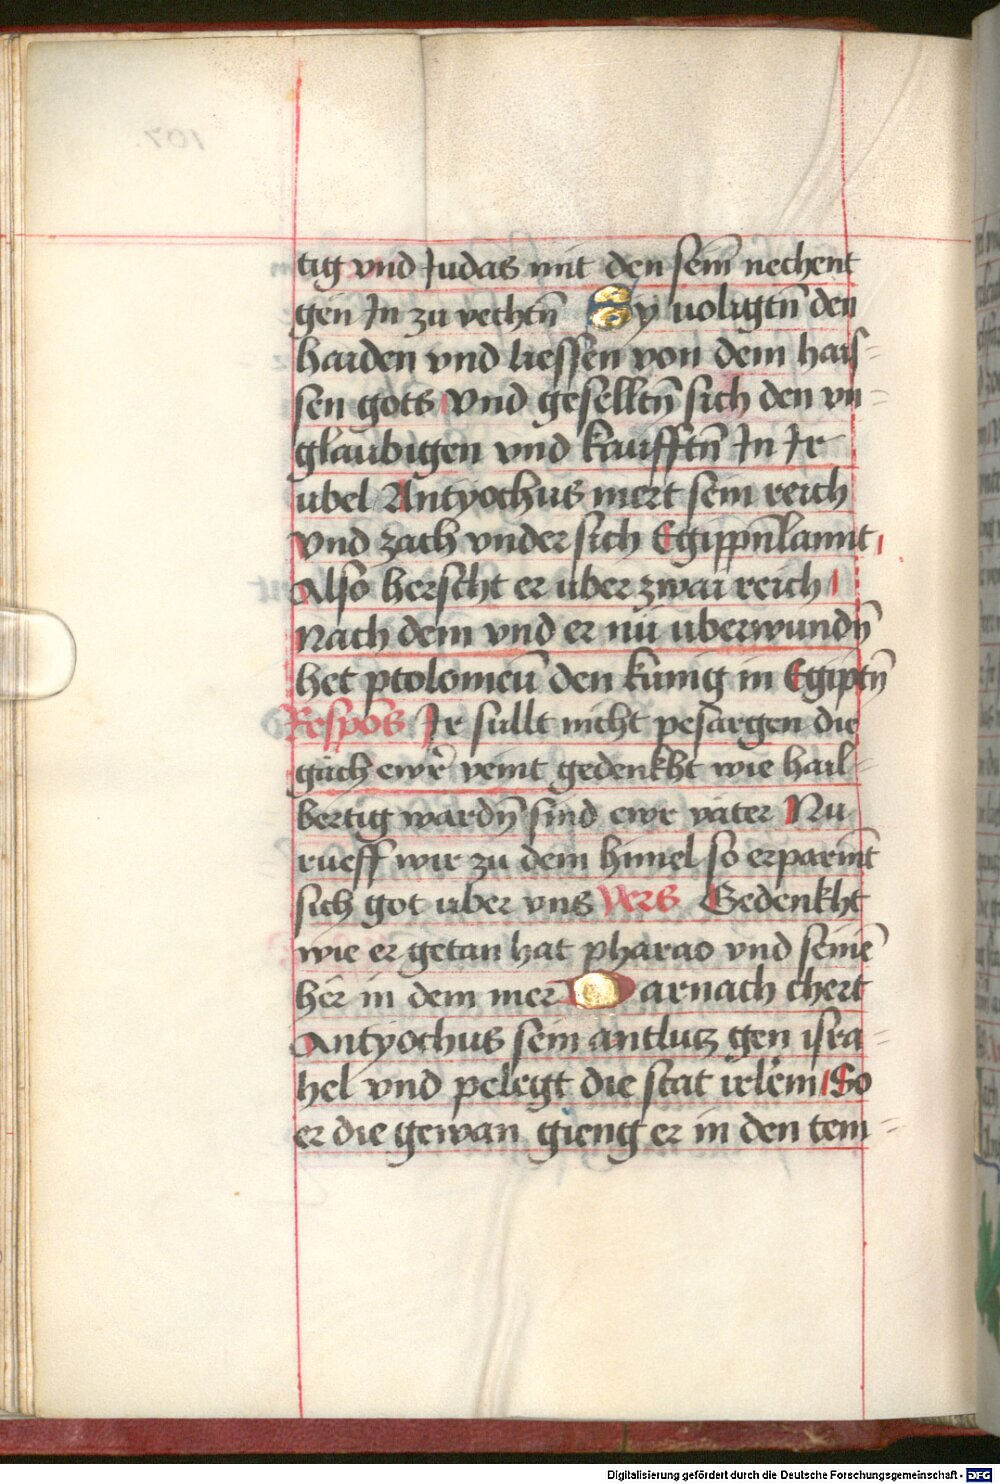 tig vnd Judas mit den sein̄ nechent
gen In zu vechtn̄ Sy uoligtn̄ den
haiden vnd liessen von dem hais=
sen gots Vnd geselltn̄ sich den vn=
glaubigen vnd kaufftn̄ In Ir
ubel Antyochus mert sein reich
Vnd zach vnder sich Egippn̄lannt
Also herscht er uber zwai reich
Nach dem vnd er nu uberwundn̄
het ptolomeū den kunig in Egiptn̄
Respons Ir sullt nicht pesargen die
gäch ewr̄ veint gedenkht wie hail=
bertig wardn̄ sind ewr väter Nu
rueff wir zu dem himel so erparmt̄
sich got uber vns Vers Gedenkht
wie er getan hat pharao vnd seinē
hèr in dem mer Darnach chert
Antyochus sein antlutz gen isra=
hel vnd pelegt die stat irlēm So
er die gewan gieng er in den tem=
107.
Digitalisierung gefördert durch die Deutsche Forschungsgemeinschaft - DFG